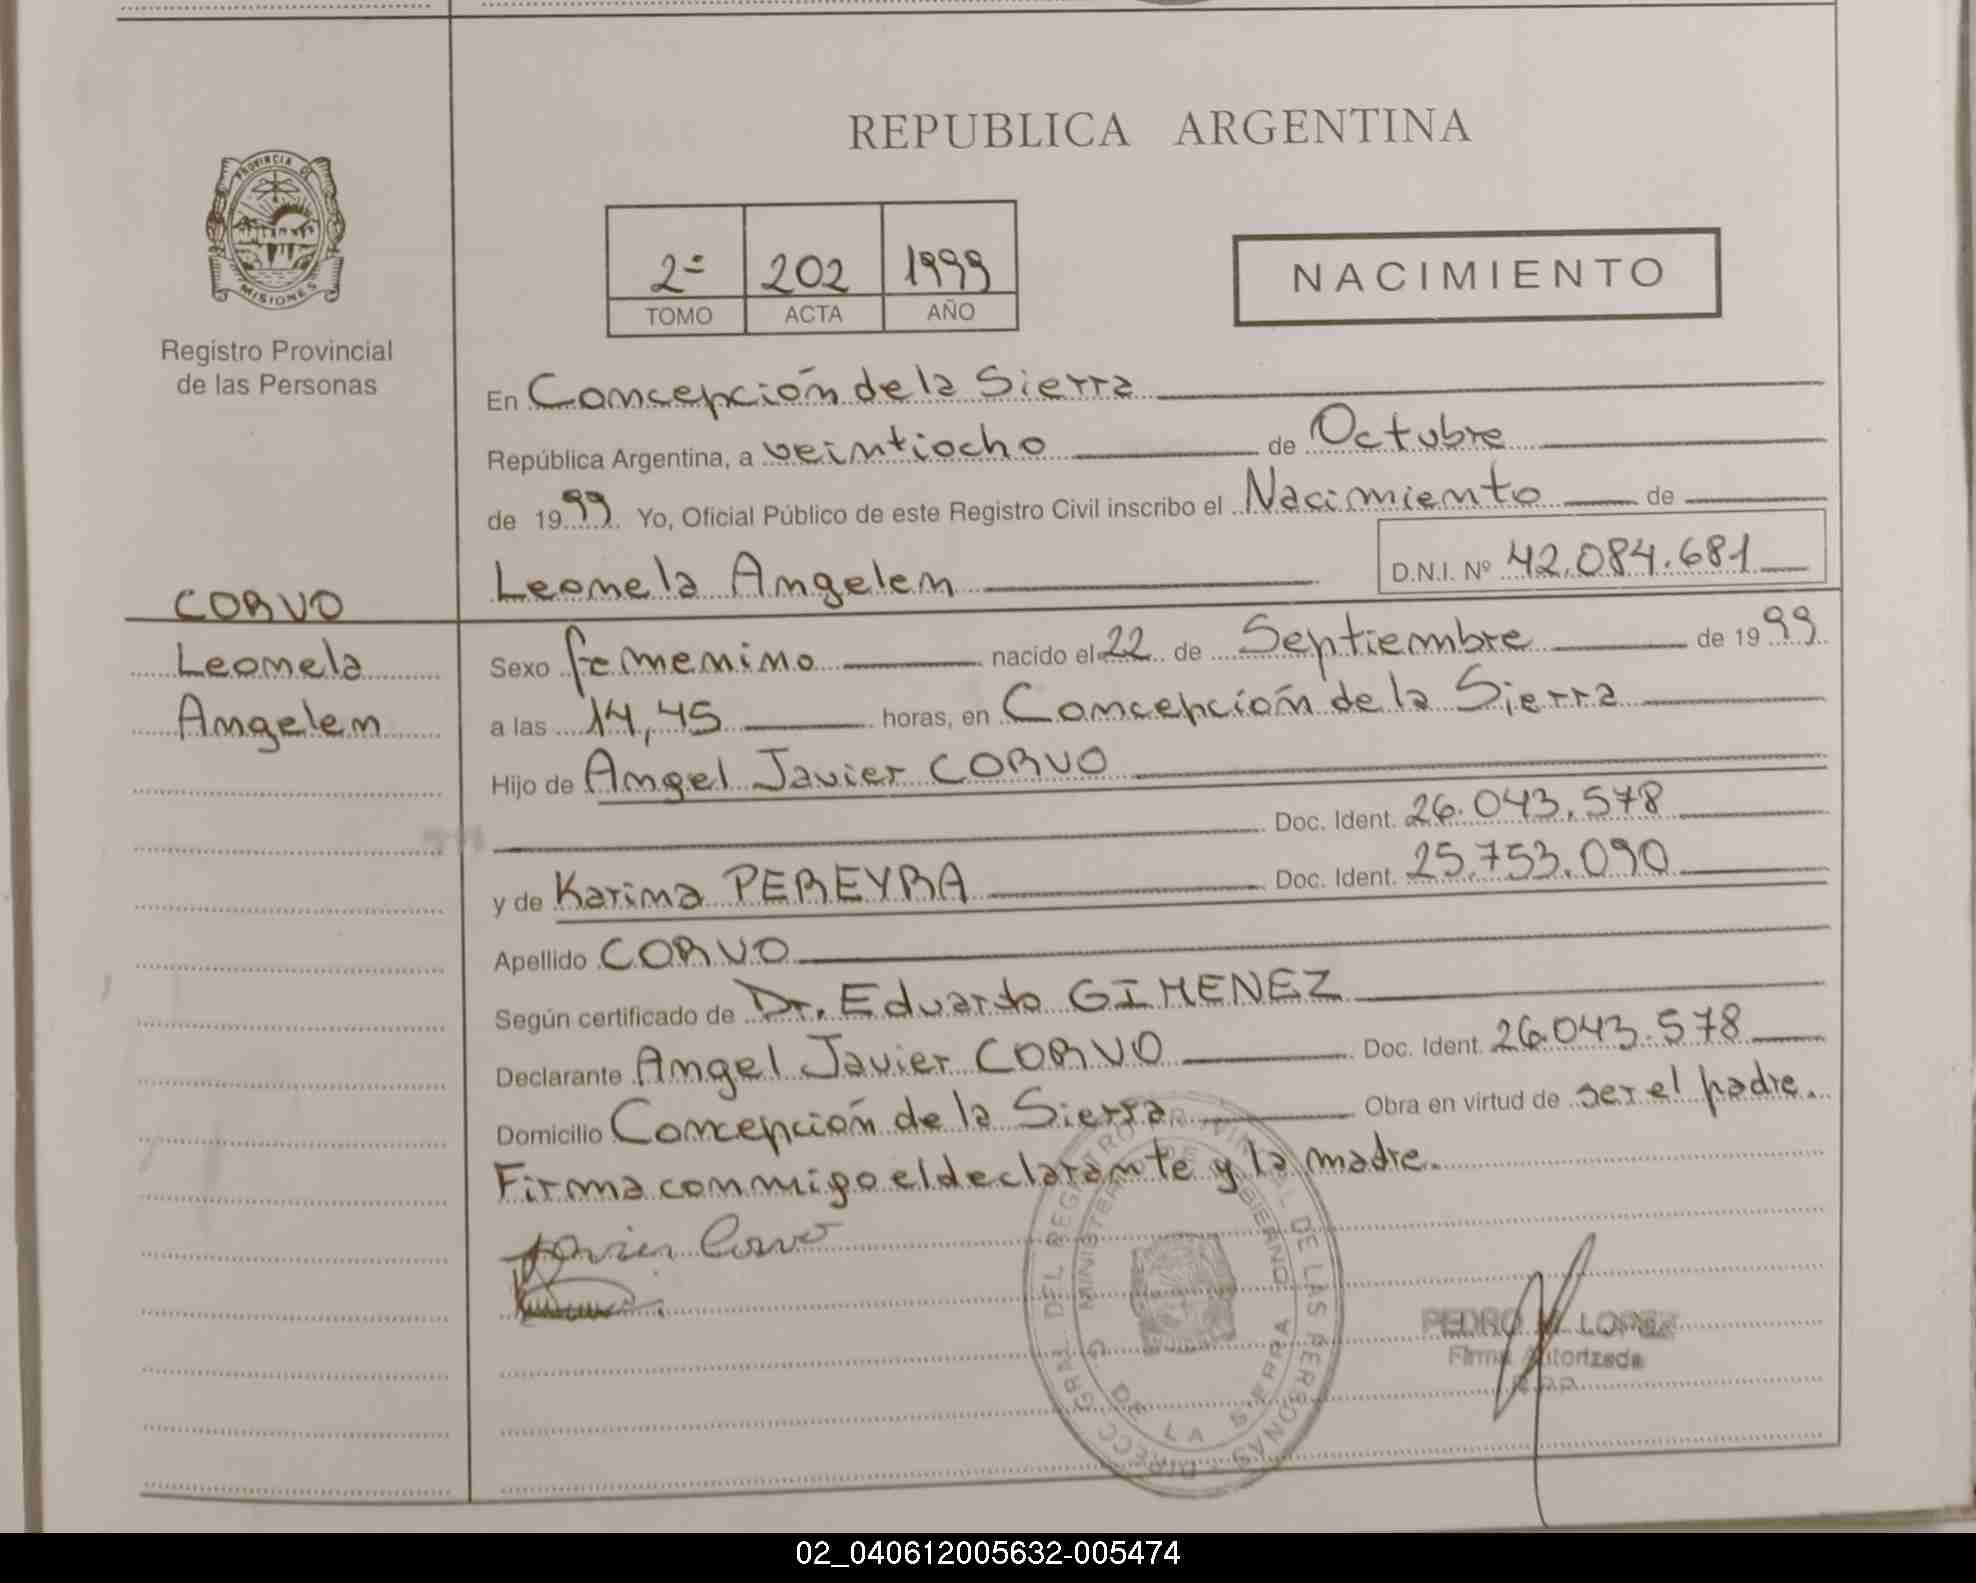 PROVINCIA DE
MISIONES
Registro Provincial
de las Personas
CORVO
Leonela
Angelen
REPUBLICA ARGENTINA
2º 202 1999
TOMO ACTA AÑO
NACIMIENTO
En Concepción de la Sierra
República Argentina, a veintiocho de Octubre
de 1999 Yo, Oficial Público de este Registro Civil inscribo el Nacimiento de
Leonela Angelen D.N.I. Nº 42.084.681
Sexo femenino nacido el 22 de Septiembre de 1999
a las 14,45 horas, en Concepción de la Sierra
Hijo de Angel Javier CORVO
Doc. Ident. 26.043.578
y de Karina PEREYRA Doc. Ident. 25.753.090
Apellido CORVO
Según certificado de Dr. Eduardo GIMENEZ
Declarante Angel Javier CORVO Doc. Ident. 26.043.578
Domicilio Concepción de la Sierra Obra en virtud de ser el padre.
Firma conmigo el declarante y la madre.
Javier Corvo
DIRECC. GRAL. DEL REGISTRO PROVINCIAL DE LAS PERSONAS
MINISTERIO DE GOBIERNO
C. DE LA SIERRA
PEDRO LOPEZ
Firma Autorizada
02_040612005632-005474